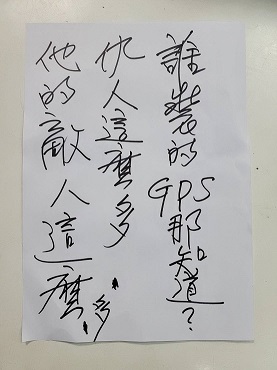 誰裝的GPS那知道?
仇人這麼多
他的敵人這麼多